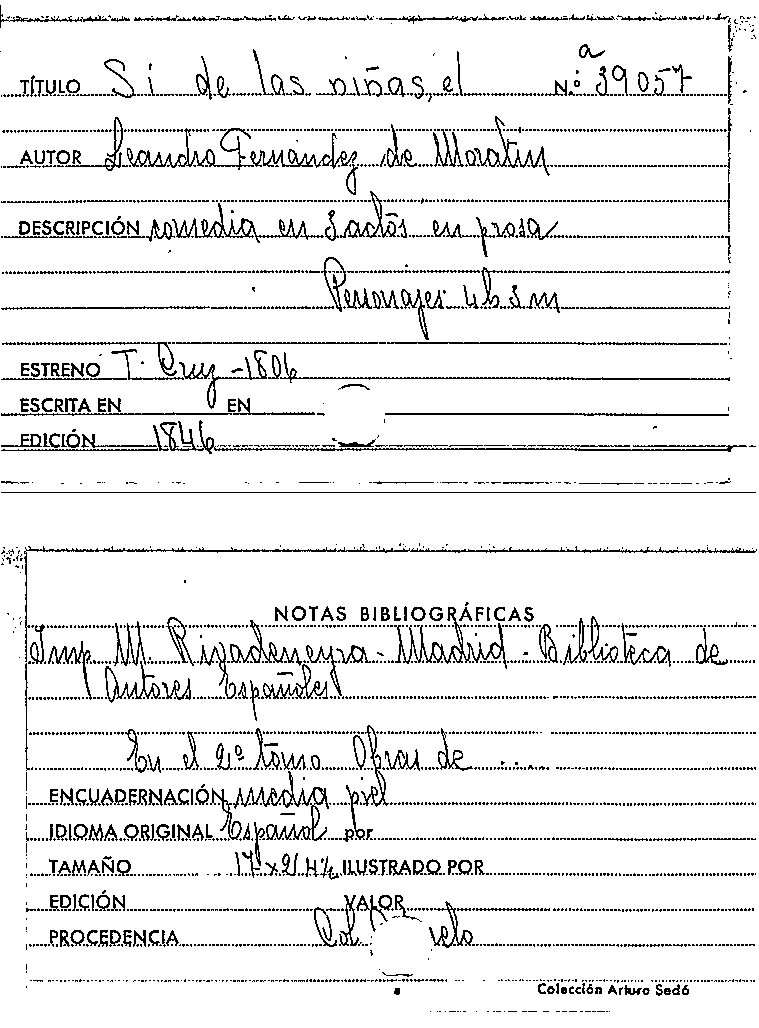 TÍTULO Si de las niñas, el N.º a 39057
AUTOR Leandro Fernández de Moratin
DESCRIPCIÓN comedia en 3 actos en prosa
Personajes 4 h 3 m
ESTRENO T. Cruz - 1806
ESCRITA EN EN
EDICIÓN 1846
NOTAS BIBLIOGRÁFICAS
Imp. M. Rivadeneyra - Madrid - Biblioteca de
Autores Españoles
En el 2º tomo Obras de ....
ENCUADERNACIÓN media piel
IDIOMA ORIGINAL Español por
TAMAÑO 17 x 24 1/2 ILUSTRADO POR
EDICIÓN VALOR
PROCEDENCIA Col
Colección Arturo Sedó